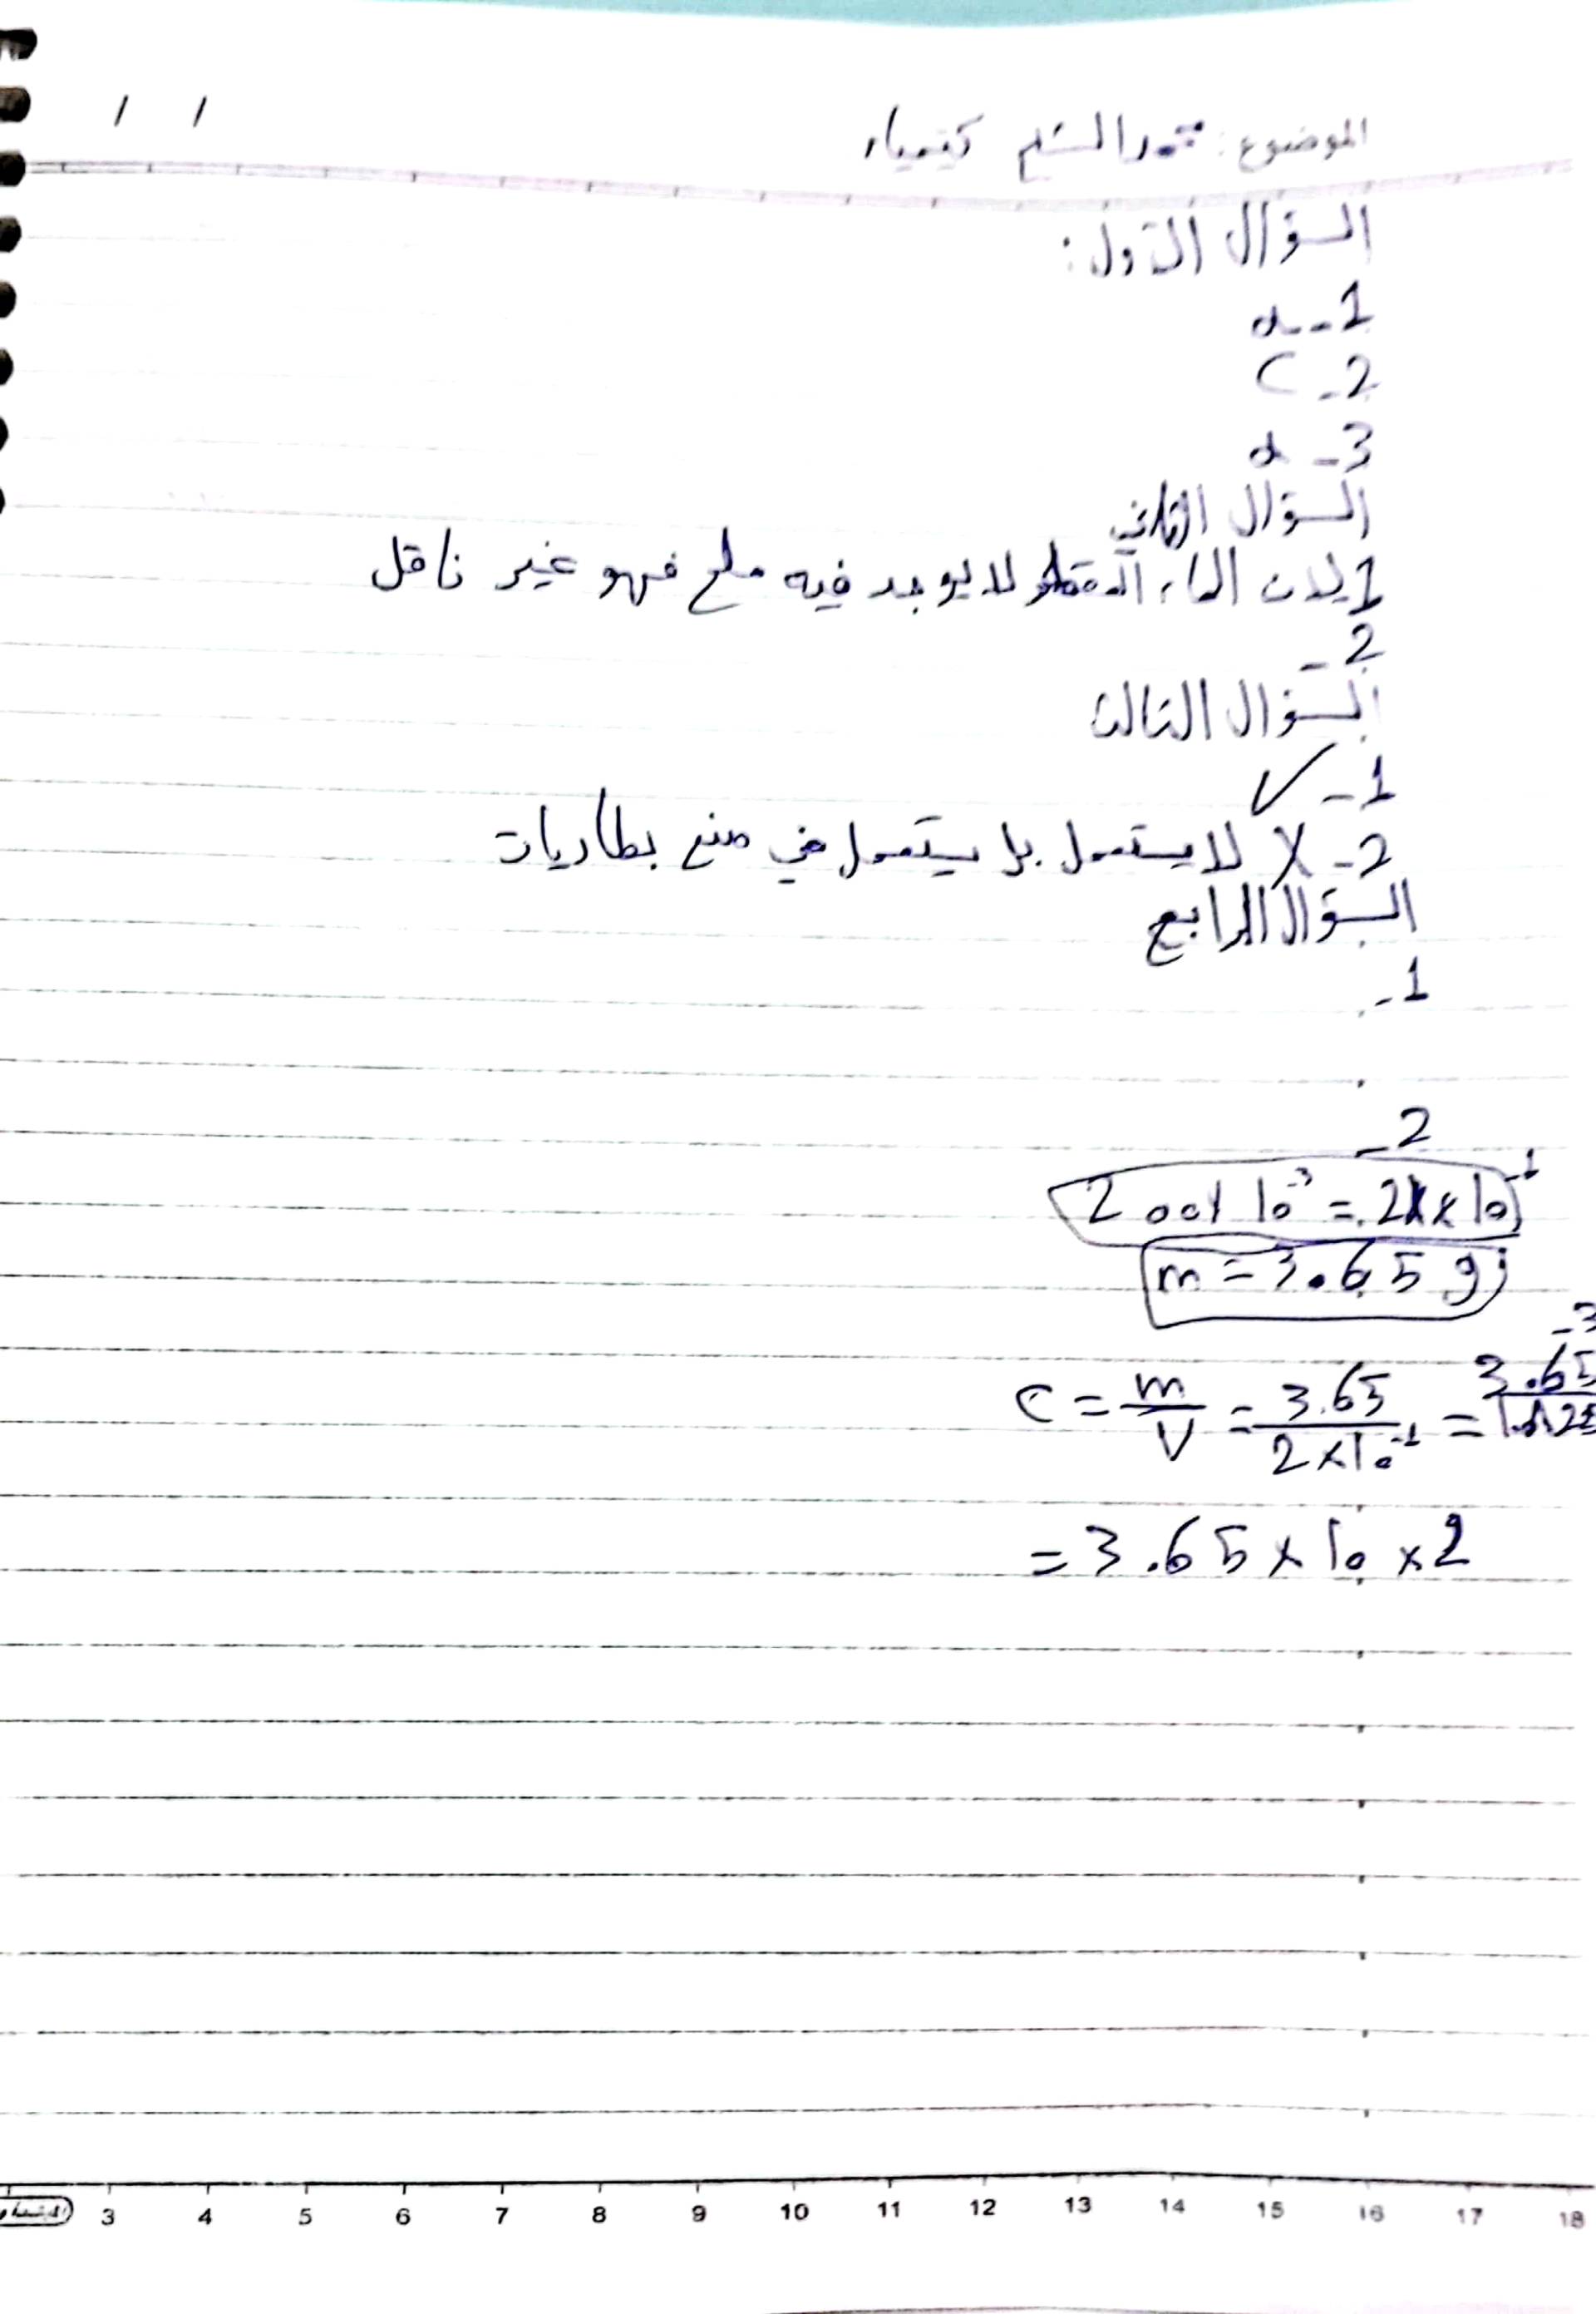 / /
الموضوع: السلم كيمياء
السؤال الأول:
1- a
2- C
3- a
السؤال الثاني
1 لان الماء المقطر لا يوجد فيه ملح فهو غير ناقل
2-
السؤال الثالث
1- ✓
2- X لا يستعمل بل يستعمل في صنع بطاريات
السؤال الرابع
1-
2-
200 x 10⁻³ = 2 x 10⁻¹
m = 3.65 g
3-
C = m/V = 3.65/2 x 10⁻¹ = 3.65/
= 3.65 x 10 x 2
3 4 5 6 7 8 9 10 11 12 13 14 15 16 17 18